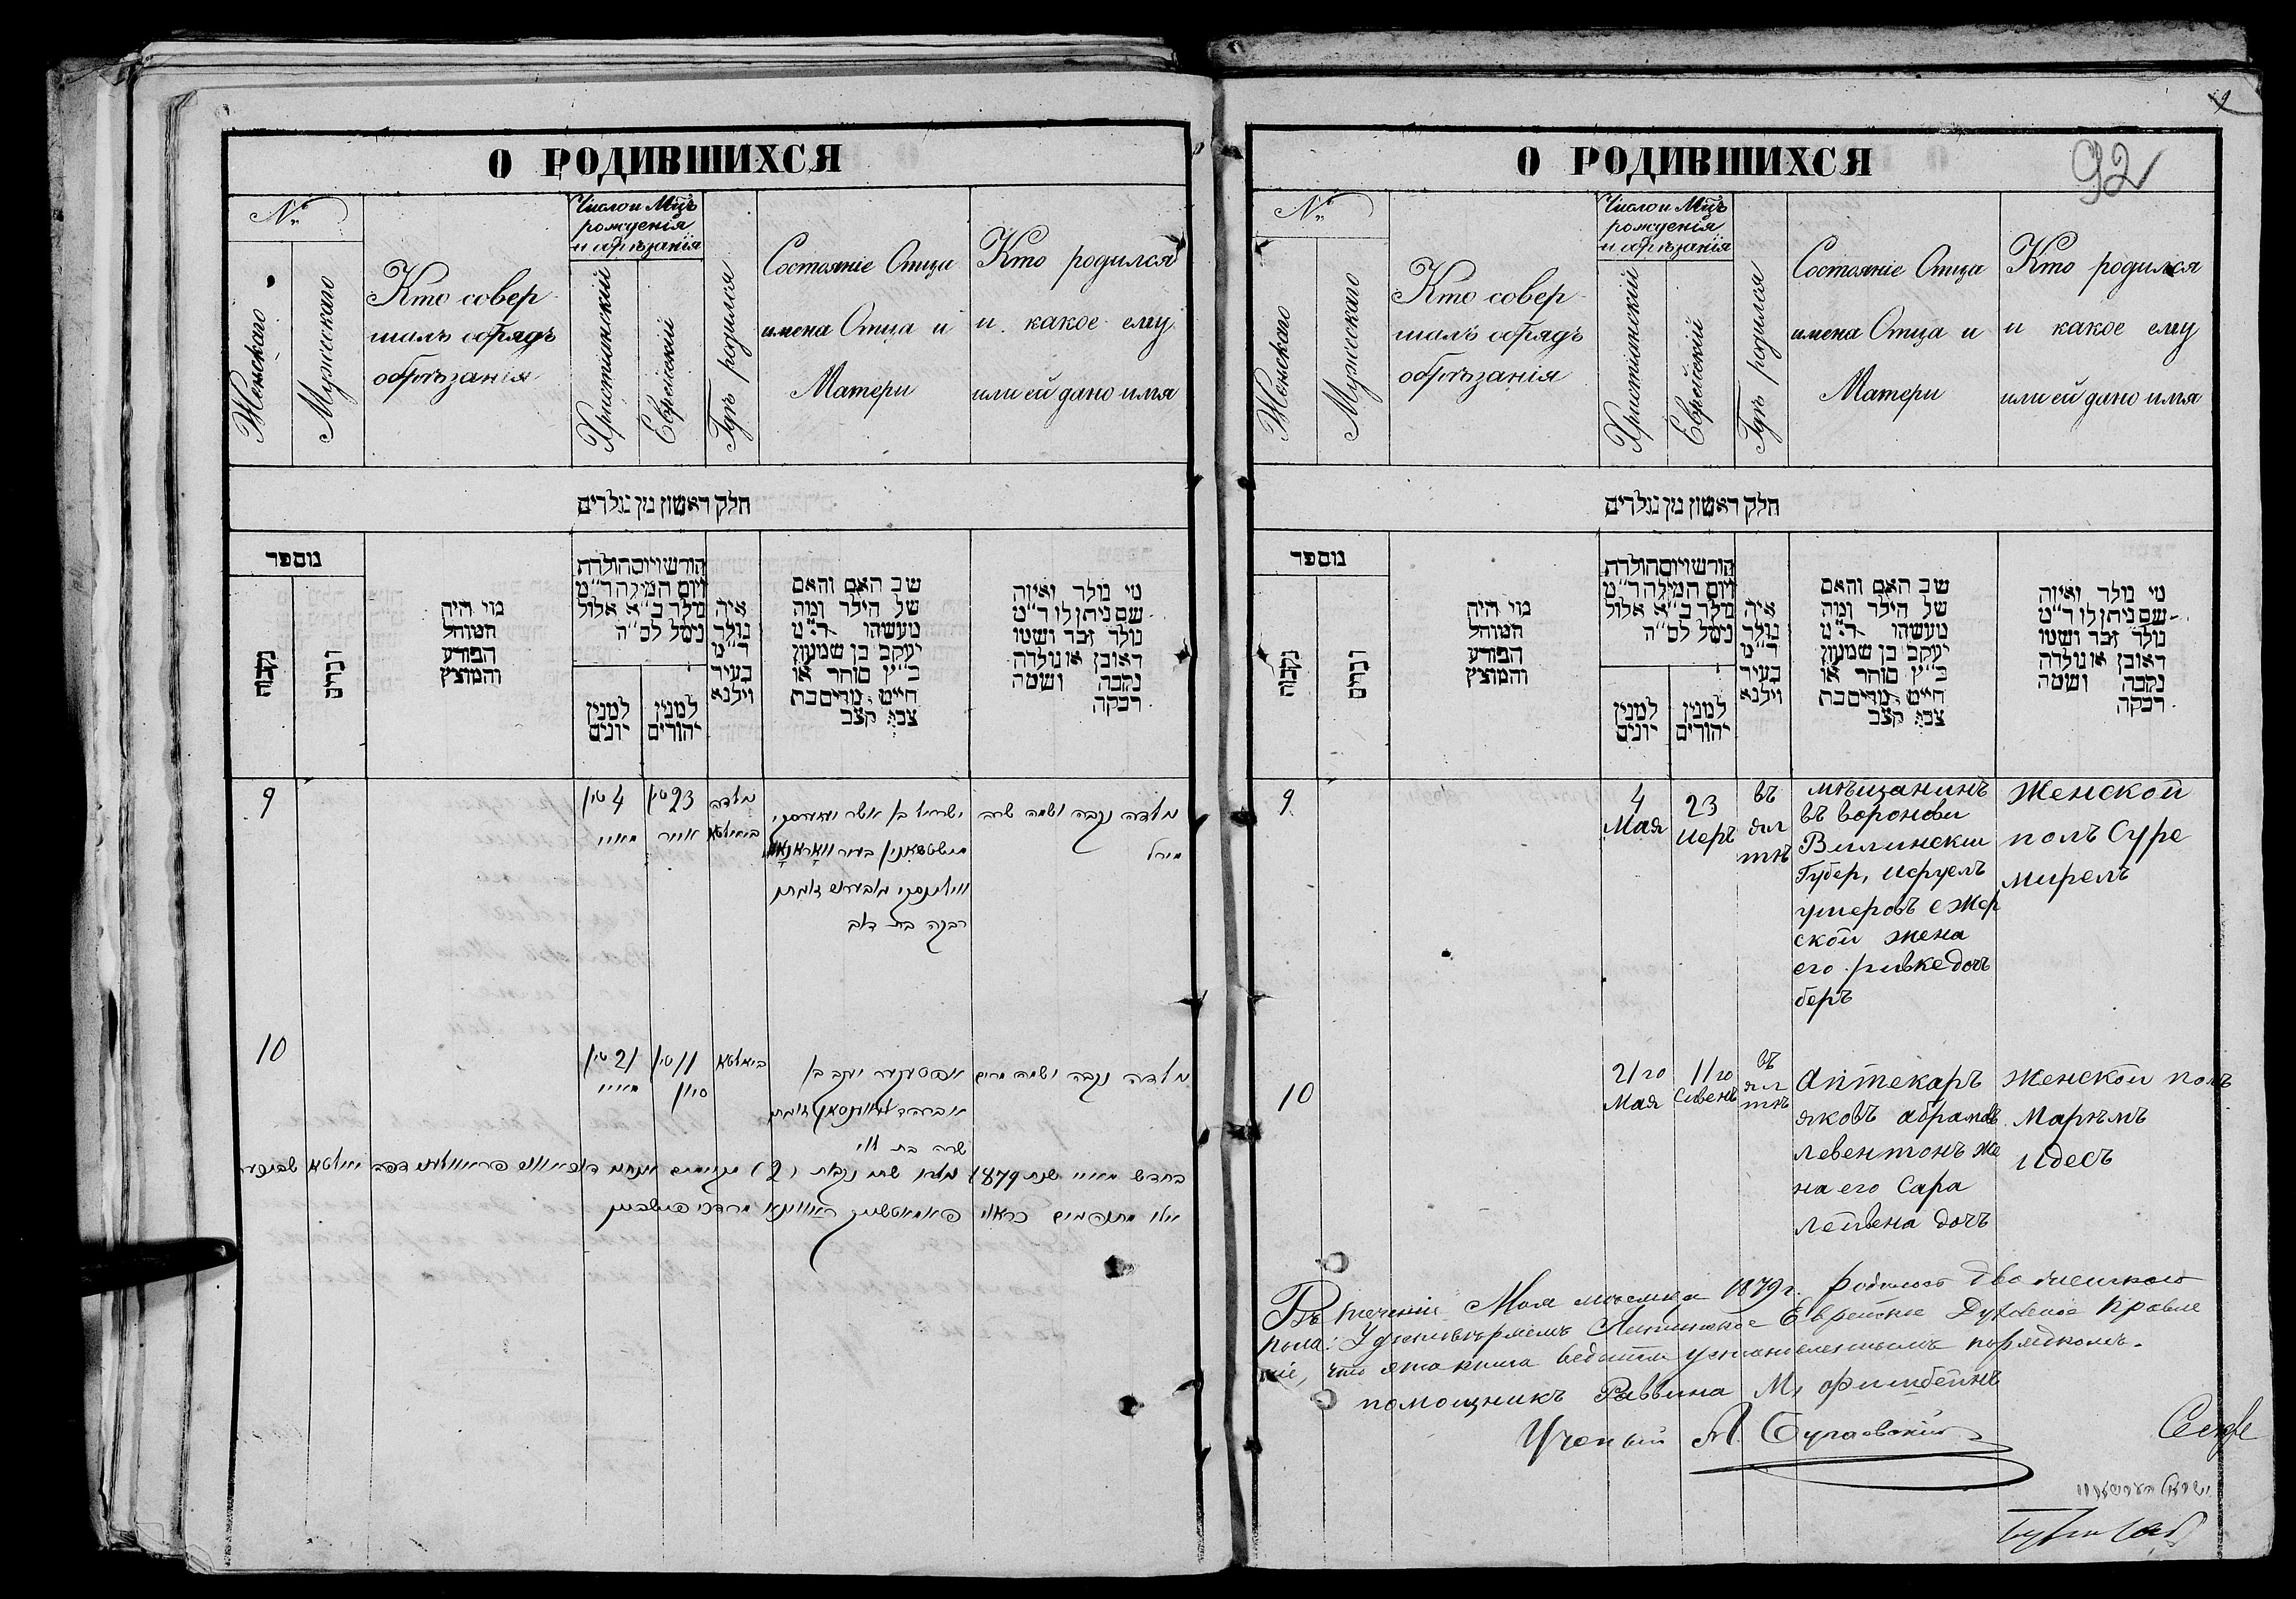 О РОДИВШИХСЯ
№
Женскаго
Мужескаго
Кто совер
шалъ обрядъ
обрѣзанія
Число и Мцъ
рожденія
и обрѣзанія
Христіанскій
Еврейскій
Гдѣ родился
Состояніе Отца
имена Отца и
Матери
Кто родился
и какое ему
или ей дано имя
חלק ראשון מן נולדים
מספר
נקבות
זכרים
מי היה
המוהל
הפורע
והמוצץ
חודש ויום הולדת
ויום המילה ד"מ
נולד ב"א אלול
נימל לס"ה
למנין
יונים
למנין
יהודים
איה
נולד
ד"מ
בעיר
וילנא
שב האם והאם
של הילד ומה
מעשהו ד"מ
יעקב בן שמעון
כ"ץ סוחר או
חייט מרים בת
צבי קצב
מי נולד ואיזה
שם ניתן לו ד"מ
נולד זכר ושמו
ראובן או נולדה
נקבה ושמה
רבקה
9
4 טין
מאיי
23 טין
אייר
נולדה
ביאלטא
ישראל בן אשר
רבקה בת דוב
נולדה נקבה ושמה שרה
מירל
10
21 טין
מאיי
11 טין
סיון
ביאלטא
אפטעקער יעקב בן
שרה בת לוי
נולדה נקבה ושמה מרים
בחדש מאיי שנת 1879 נולדו שתי נקבות (2)
О РОДИВШИХСЯ
92
№
Женскаго
Мужескаго
Кто совер
шалъ обрядъ
обрѣзанія
Число и Мцъ
рожденія
и обрѣзанія
Христіанскій
Еврейскій
Гдѣ родился
Состояніе Отца
имена Отца и
Матери
Кто родился
и какое ему
или ей дано имя
חלק ראשון מן נולדים
מספר
נקבות
זכרים
מי היה
המוהל
הפורע
והמוצץ
חודש ויום הולדת
ויום המילה ד"מ
נולד ב"א אלול
נימל לס"ה
למנין
יונים
למנין
יהודים
איה
נולד
ד"מ
בעיר
וילנא
שב האם והאם
של הילד ומה
מעשהו ד"מ
יעקב בן שמעון
כ"ץ סוחר או
חייט מרים בת
צבי קצב
מי נולד ואיזה
שם ניתן לו ד"מ
נולד זכר ושמו
ראובן או נולדה
נקבה ושמה
רבקה
9
4
Мая
23
иеръ
въ
ял
тѣ
мѣщанинъ
въ воронови
Вилински
Губер, исруелъ
ушеровъ
ской жена
его ривке дочъ
беръ
Женской
полъ Суре
мирелъ
10
21го
Мая
11го
Сивенъ
въ
ял
тѣ
Аптекаръ
яковъ абрамовъ
левентонъ же
на его Сара
лейвена дочъ
женской полъ
Марѣмъ
идесъ
Въ теченіи Мая месяца 1879 г. родилось два женскаго
пола: Удостовѣряемъ Ялтинское Еврейское Духовное Правле
ніе, что эта книга ведется установленнымъ порядкомъ.
помощникъ Раввина М, фишбейнъ
Ученый